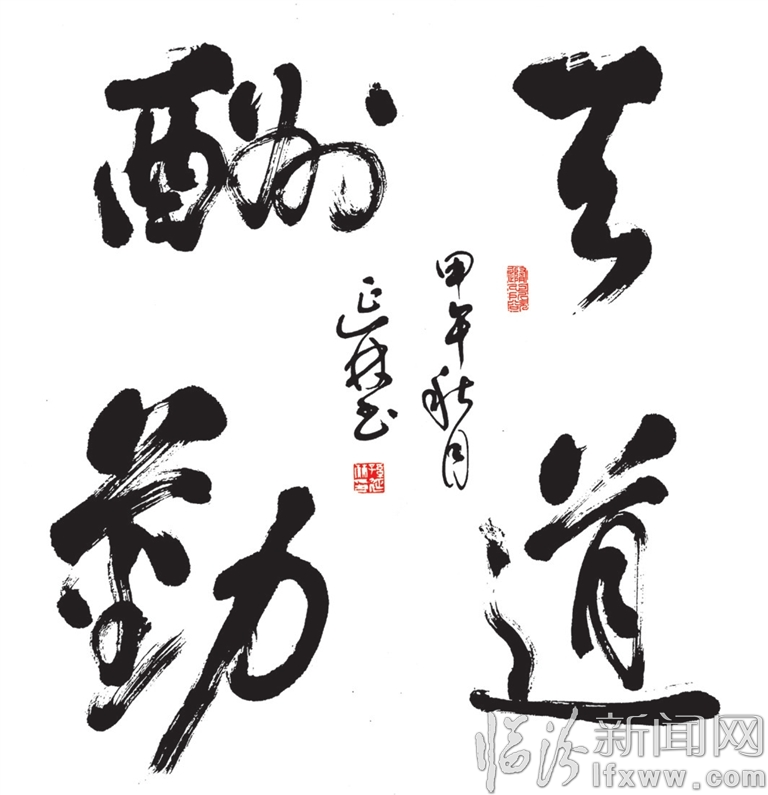 天道
酬勤
甲午秋月
延林书
临汾新闻网
lfxww.com